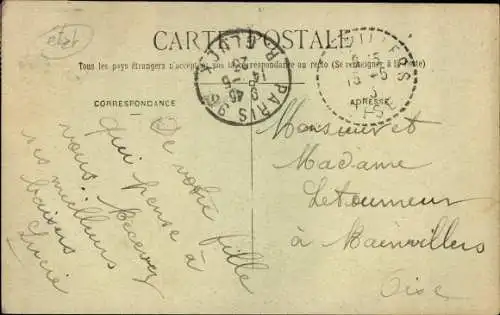 état
CARTE POSTALE
Tous les pays étrangers n'acceptent pas la correspondance au recto (Se renseigner à la Poste)
CORRESPONDANCE
ADRESSE
PARIS 9
R. GLUCK
De votre fille
qui pense à
vous. Recevez
ses meilleurs
baisers
Lucie
Monsieur et
Madame
Letourneur
à Bainvillers
Oise